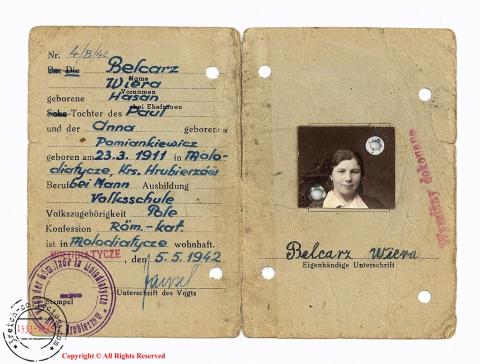 Nr. 4/B/42
Der Die Belcarz
Name
Wiera
Vornamen
geborene Hasan
bei Ehefrauen
Sohn-Tochter des Paul
und der Anna geborenen
Pamiankiewicz
geboren am 23.3.1911 in Molo-
diatycze, Krs. Hrubieszów
Beruf bei Mann Ausbildung
Volksschule
Volkszugehörigkeit Pole
Konfession Röm.-kat.
ist in Molodiatycze wohnhaft.
MOLODIATYCZE, den 5.5.1942
Unterschrift des Vogts
Stempel
Belcarz Wiera
Eigenhändige Unterschrift
dokonano
Copyright © All Rights Reserved